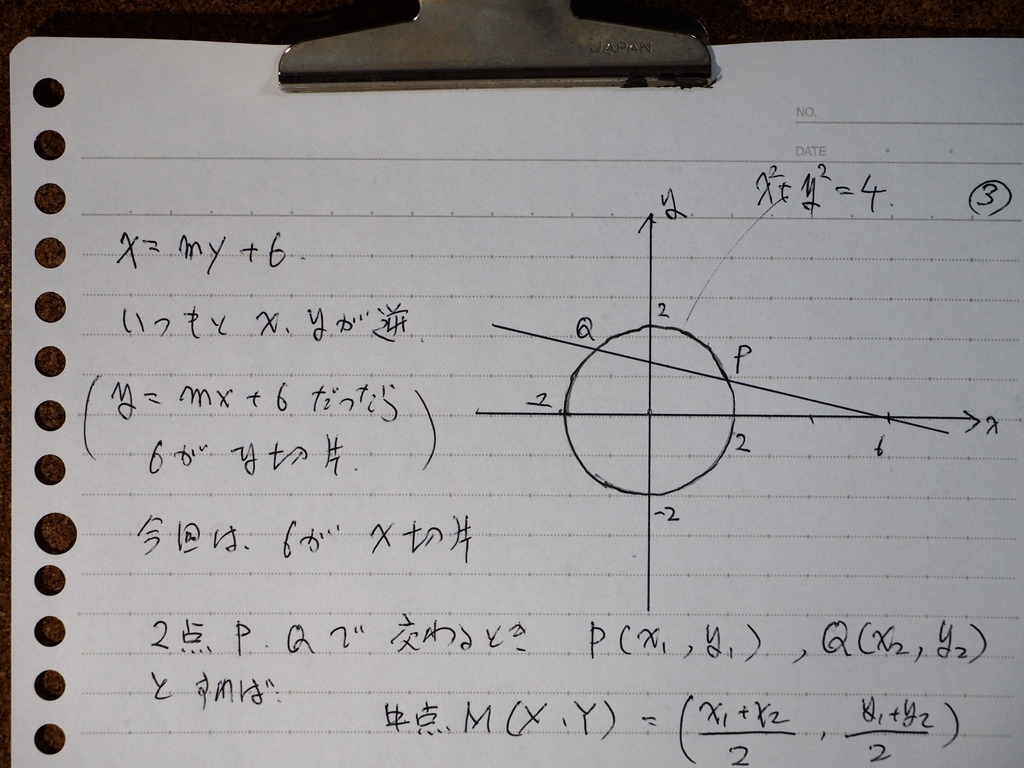 JAPAN
NO.
DATE
x²+y²=4
③
y
x=my+6.
いつもと x、yが逆
(y=mx+6 だったら
6が y切片.)
今回は、6が x切片
2
Q
P
-2
2
6
x
-2
2点 P.Qで 交わるとき P(x₁,y₁), Q(x₂,y₂)
と すれば
中点 M(X、Y) = ((x₁+x₂)/2, (y₁+y₂)/2)